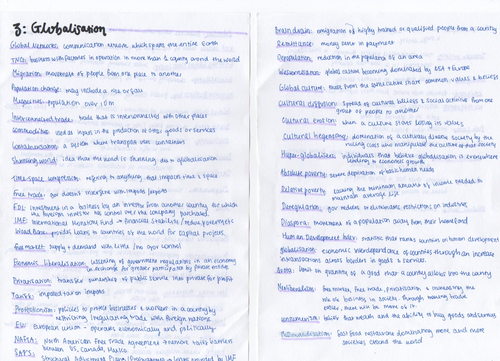 3: Globalisation
Global Networks: communication network which spans the entire Earth
TNCs: business with factories in operation in more than 1 country around the world
Migration: movement of people from one place to another
Population change: may include a rise or fall
Megacities: population over 10m
Interconnected trade: trade that is interconnected with other places
Commodities: used as inputs in the production of other goods or services
Containerisation: a system where transport uses containers
Shrinking world: idea that the world is shrinking due to globalisation
Time-space compression: referring to anything that impacts time & space
Free trade: gov doesn't interfere with imports/exports
FDI: investment in a business by an investor from another country for which
the foreign investor has control over the company purchased.
IMF: International Monetary Fund
World Bank: provides loans to countries of the world for capital projects.
Free market: supply + demand with little / no gov control
Economic liberalisation: lessening of government regulations in an economy
in exchange for greater participation by private entities
Privatisation: transfer ownership of public service into private for profit
Tariffs: import/export
Protectionism: policies to protect businesses & workers in a country by
restricting / regulating trade with foreign nations
EU: european union - operates economically and politically
NAFTA: North American Free Trade Agreement - removes tariff barriers
between US, Canada, Mexico
SAPs: Structural Adjustment
Brain drain: emigration of highly trained or qualified people from a country
Remittance: money sent in payment
Depopulation: reduction in the population of an area
Westernisation: global culture becoming dominated by USA + Europe
Global culture: share common values & beliefs
Cultural diffusion: spread of cultural beliefs & social activities from one
group of people to another
Cultural erosion: when a culture starts losing its values
Cultural hegemony: domination of a culturally diverse society by the
ruling class who manipulate the culture of that society
Hyper-globalisers: individuals that believe globalisation is everywhere
leading to economic growth
Absolute poverty: severe deprivation of basic human needs
Relative poverty: lacking the minimum amount of income needed to
maintain average
Deregulation: gov reduces or eliminates restrictions on industries
Diaspora: movement of a population away from their homeland
Human Development Index: statistic that ranks countries on human development
Globalisation: economic interdependence of countries through an increase
in transactions across borders in goods & services.
limit on quantity of a good that a country allows into the country
Neoliberalism: free markets, free trade, privatisation, & minimising the
role of business in society through
which has wealth and the ability to buy goods and services
McDonaldisation: fast food restaurants dominating more and more
societies around the world